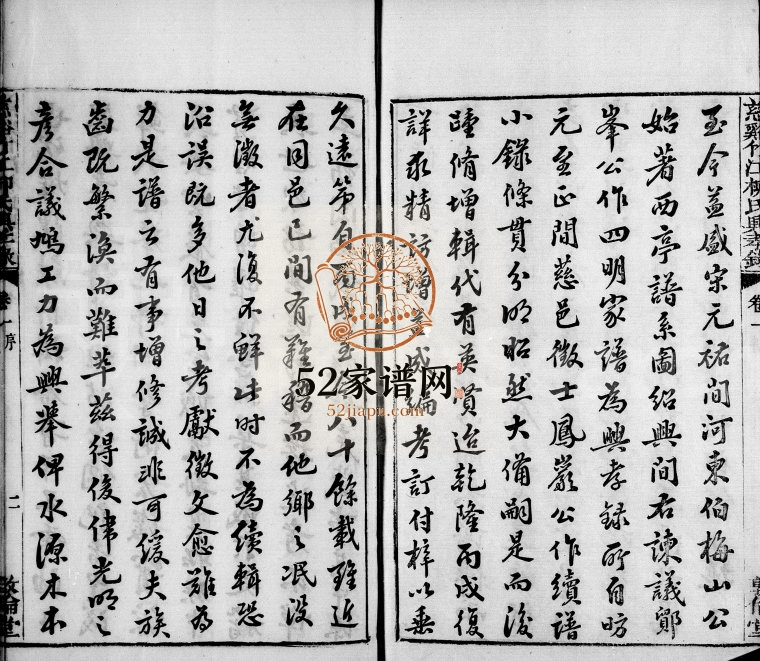 慈谿竹江柳氏興孝錄 卷一
至今益盛宋元祐间河東伯梅山公
始著西亭譜系圖紹興間右諫議鄮
峯公作四明家譜為興孝録所自昉
元至正間慈邑徵士鳳巖公作續譜
小錄條貫分明昭然大備嗣是而後
踵脩增輯代有英賢迨乾隆丙戌復
詳求精訪增 成编考訂付梓以垂
敦倫堂
久遠第自 戌至 八十餘載雖近
在同邑已間有難稽而他鄉之泯没
無徵者尤復不鮮此时不為續輯恐
沿误既多他日之考獻徵文愈難為
力是譜之有事增修誠非可缓夫族
齒既繁渙而難萃兹得俊偉光明之
彦合議鳩工力為興舉俾水源木本
卷一 序
二
敦倫堂
52家谱网
52jiapu.com